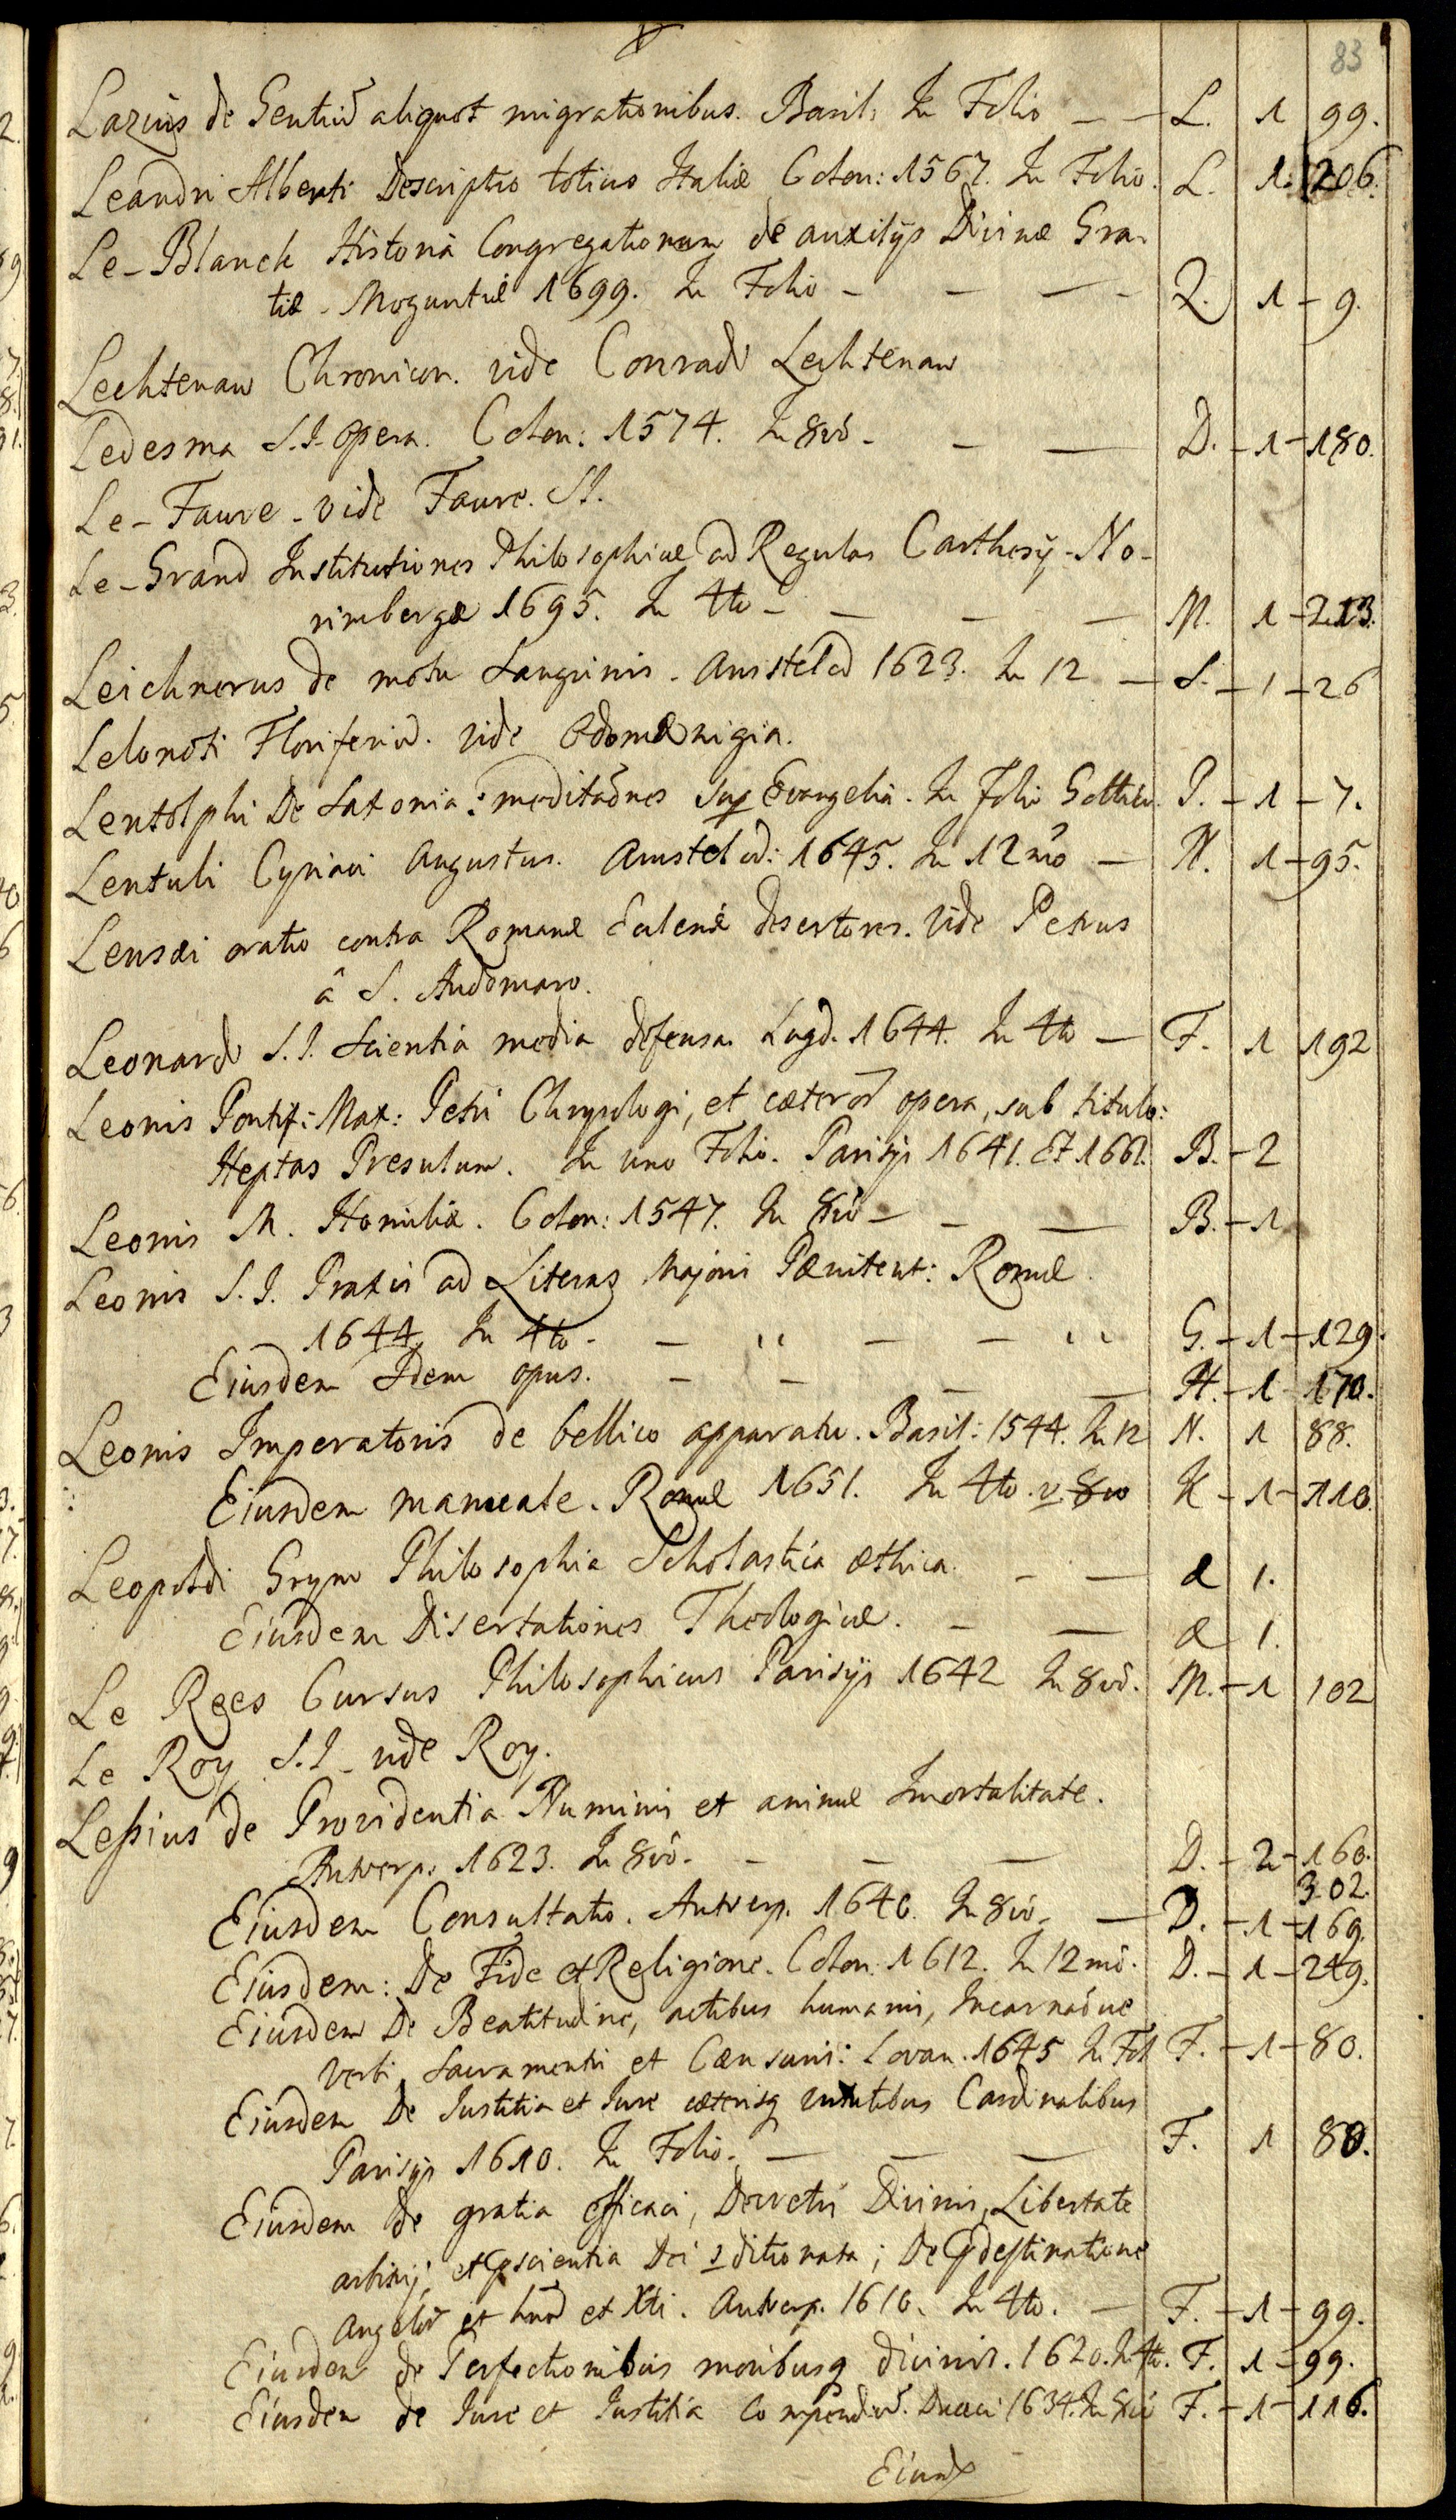 83
Lazius de Gentiu aliquot migrationibus. Basil: In Folio – – L. 1 99.
Leandri Alberti Descriptio totius Italiæ Colon: 1567. In Folio. L. 1. 206.
Le-Blanck Historia Congregationum de auxilijs Divinæ Gra-
tiæ - Moguntiæ 1699. In Folio – – – – Q. 1 – 9.
Lechtenaw Chronicon. vide Conradi Lechtenaw
Ledesma S.I. opera. Colon: 1574. In 8vo – – – D. – 1 – 180.
Le-Faure - vide Faure. S.I.
Le-Grand Institutiones Philosophiæ ad Regulas Carthesij - No-
rimbergæ 1695. In 4to – – – – M. 1 – 213.
Leichnerus de motu Sanguinis - Amstelod 1623. In 12 – S. – 1 – 26
Lelonoti Floriferiu. vide
Lentolphi De Saxonia: meditaões sup Evangelia. In Folio P. – 1 – 7.
Lentuli Cyriaci Augustus. Amstelod: 1645. In 12mo – N. 1 – 95.
Lensæi oratio contra Romanæ Ecclesiæ desertores. Vide Petrus
â S. Audomaro.
Leonardi S.I. Scientia media defensa. Lugd. 1644. In 4to – F. 1 192
Leonis Pontif: Max: Petri Chrysologi, et cæteror opera, sub titulo:
Heptas Presulum. In uno Folio. Parisijs 1641. Et 1661. B. – 2
Leonis M. Homiliæ. Colon: 1547. In 8vo – – – B. – 1
Leonis S.I. Praxis ad Literas Majoris Pænitent: Romæ.
1644. In 4to – – ,, – – ,, G. – 1 – 129.
Eiusdem Idem opus. – – – – H. – 1 170.
Leonis Imperatoris de bellico apparatu. Basil: 1544. In 12 N. 1 88.
Eiusdem manuale. Romæ 1651. In 4to. v. 8vo K – 1 – 110.
Leopoldi Grym Philosophia Scholastica æthica. – – æ 1.
Eiusdem Disertationes Theologicæ. – – æ 1.
Le Rees Cursus Philosophicus Parisijs 1642 In 8vo. M. – 1 102
Le Roy S.I - vide Roy.
Leßius de Providentia Numinis et animæ Imortalitate.
Antverp. 1623. In 8vo. – – – D. – 2 – 160.
302.
Eiusdem Consultatio. Antverp. 1640. In 8vo – – D. – 1 – 169.
Eiusdem: De Fide et Religione. Colon: 1612. In 12mo. D. – 1 – 249.
Eiusdem De Beatitudine, actibus humanis, Incarnaõne
Verbi Sacramentis et Cænsuris: Lovan. 1645 In Fol F. – 1 – 80.
Eiusdem De Iustitia et Iure cæterisq virtutibus Cardinalibus
Parisijs 1610. In Folio. – – – F. 1 80.
Eiusdem de gratia efficaci, Decretis Divinis, Libertate
arbitrij, et pscientia Dei ɔditionata; De Pdestinatione
Angelor et hnor et Xti. Antverp. 1610. In 4to. – F. – 1 – 99.
Eiusdem de Perfectionibus moribusq divinis. 1620. In 4to. F. 1 – 99.
Eiusdem de Iure et Iustitia Compendiu. Duaci 1634. In 8vo F. – 1 – 116.
Eiusd